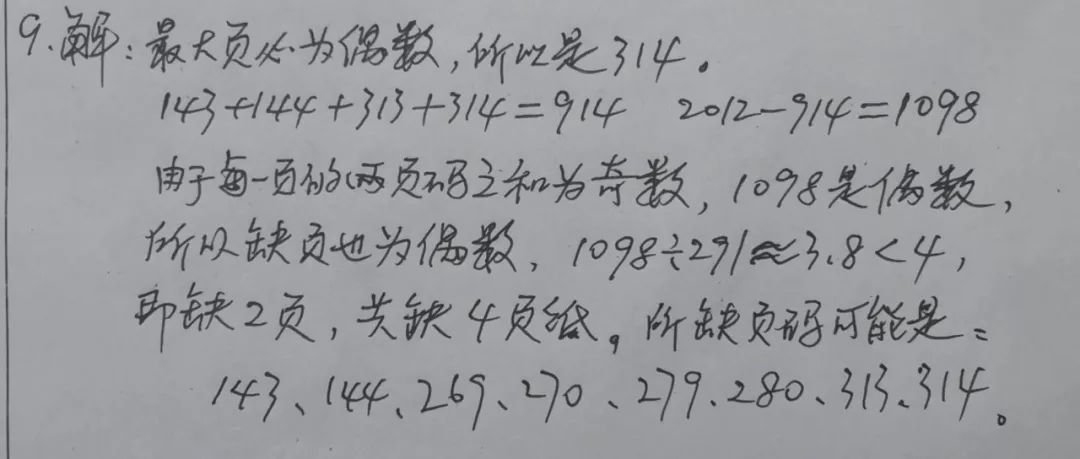 9.解:最大页必为偶数,所以是314。
143+144+313+314=914 2012-914=1098
由于每一页的两页码之和为奇数,1098是偶数,
所以缺页也为偶数,1098÷291≈3.8<4,
即缺2页,共缺4页纸。所缺页码可能是:
143、144、269、270、279、280、313、314。